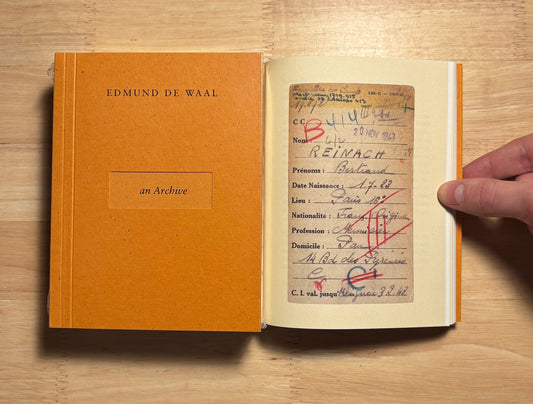 EDMUND DE WAAL
an Archive
C C
B 414
20 NOV 1943
Nom:
REINACH
Prénoms: Bertrand
Date Naissance: 1.7-23
Lieu: Paris 16e
Nationalité: Franç. Origine
Profession: Menuisier
Domicile: Paris
14 Bd des Pyrénées
C1
C. I. val. jusqu'